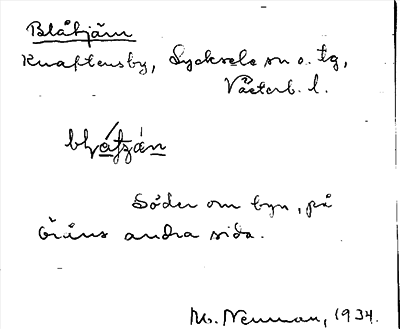 Blåtjärn
Knaftensby, Lycksele sn o. tg,
Västerb. l.
Söder om byn, på
Öråns andra sida.
M. Neuman, 1934.